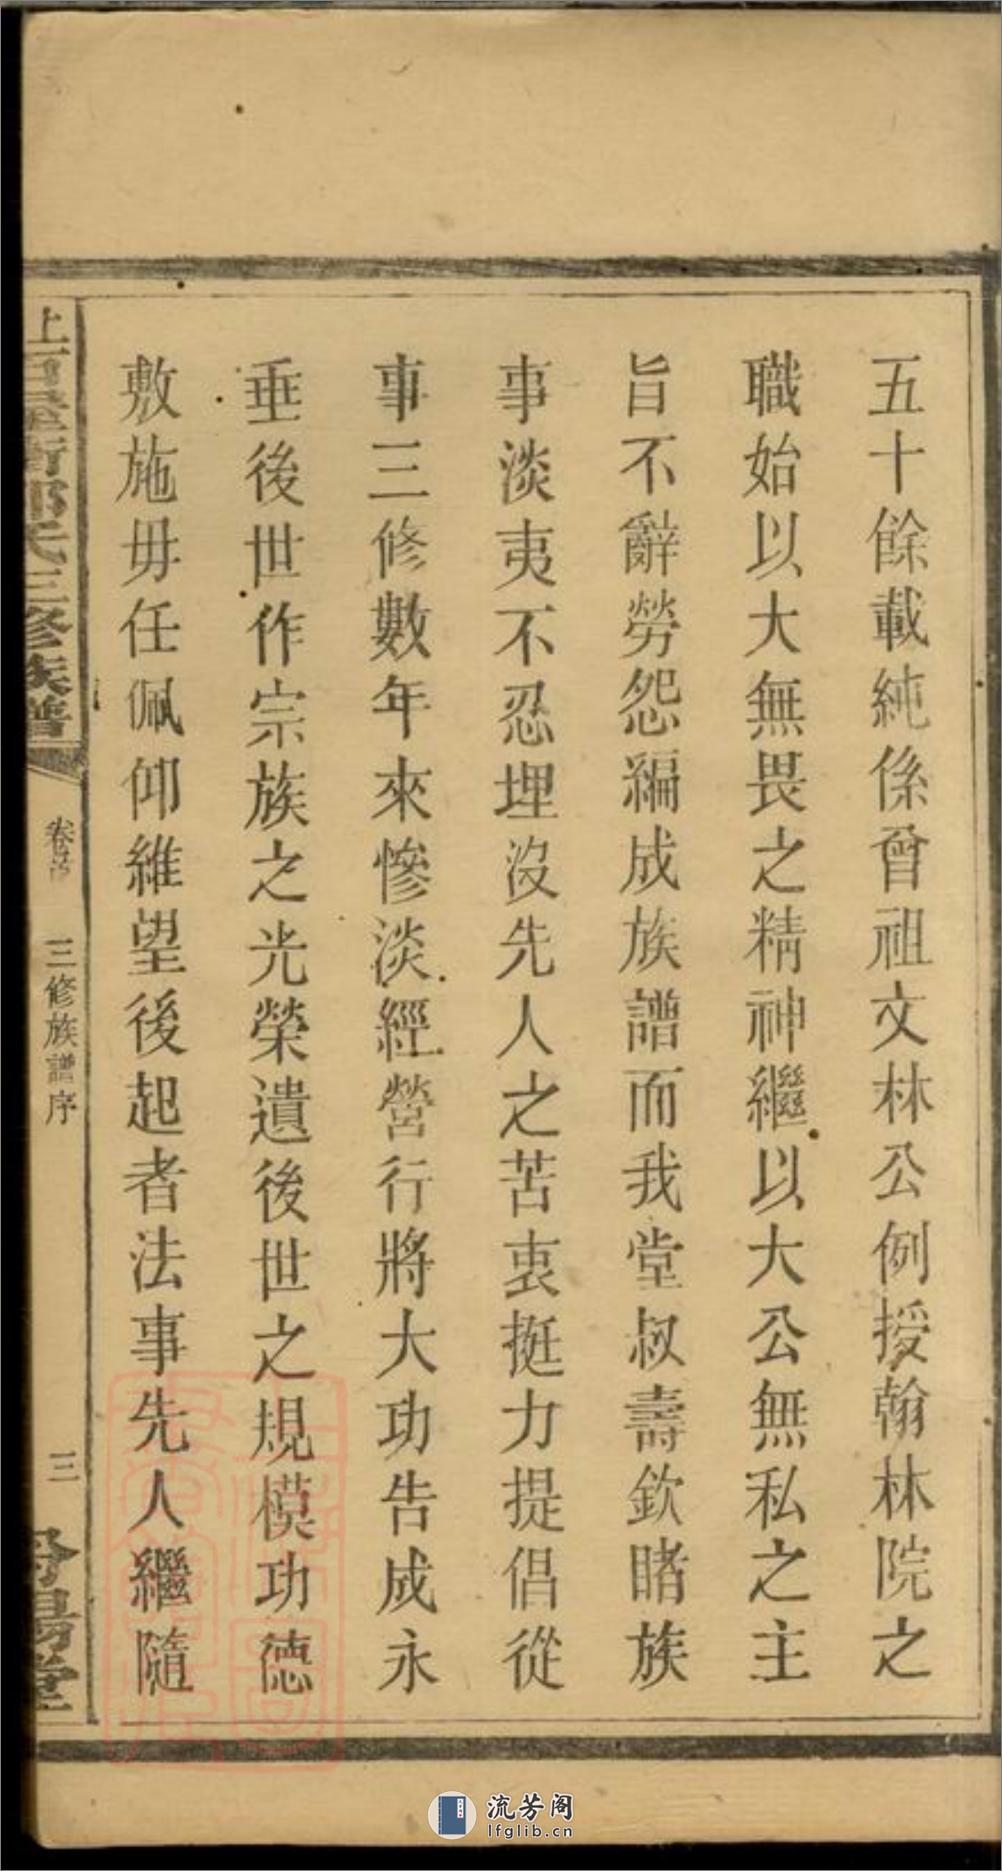 五十餘載純係曾祖文林公例授翰林院之
職始以大無畏之精神繼以大公無私之主
旨不辭勞怨編成族譜而我堂叔壽欽睹族
事淡夷不忍埋沒先人之苦衷挺力提倡從
事三修數年來慘淡經營行將大功告成永
垂後世作宗族之光榮遺後世之規模功德
敷施毋任佩仰維望後起者法事先人繼隨
氏三修族譜
卷首
三修族譜序
三
汾陽堂
流芳阁
lfglib.cn